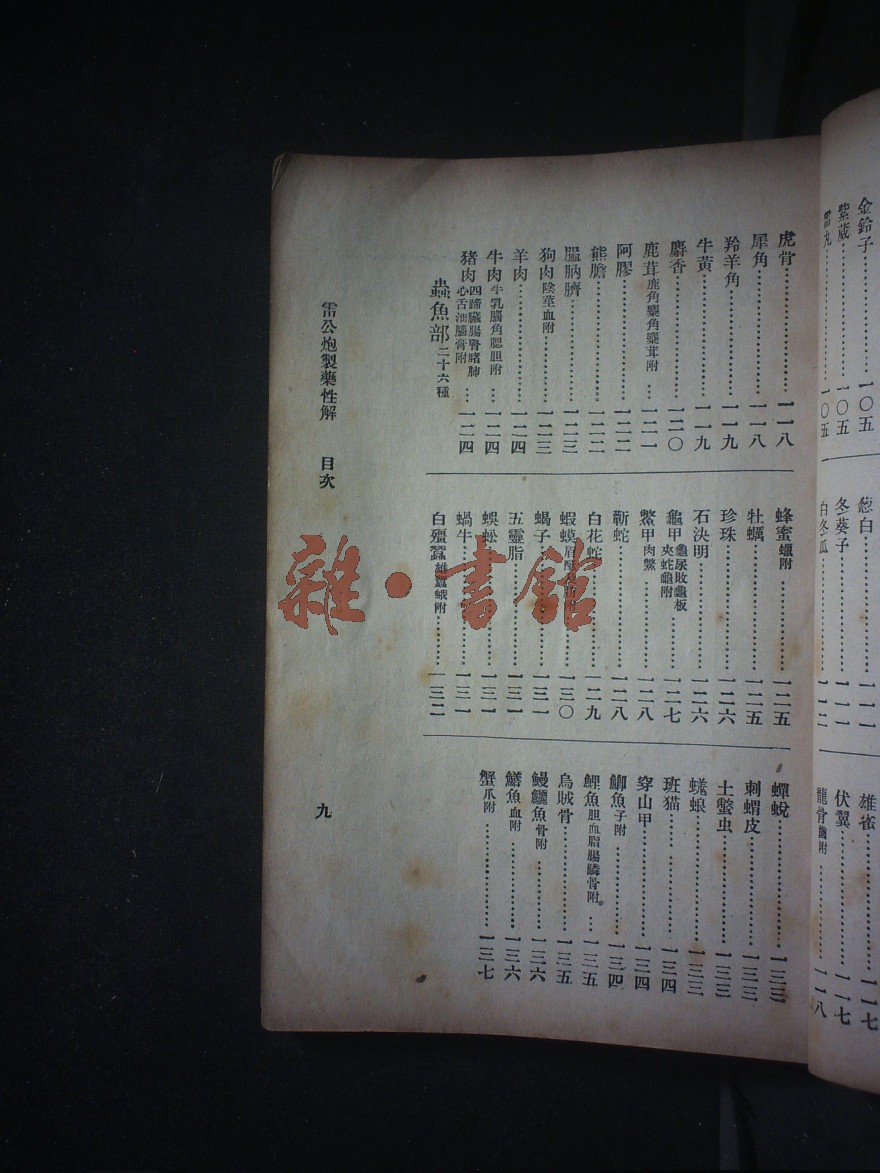 金鈴子……一〇五
紫葳……一〇五
雷丸……一〇五
葱白……一一一
冬葵子……一一一
白冬瓜……一一二
雄雀……一一七
伏翼……一一七
龍骨齒附……一一八
虎骨……一一八
犀角……一一八
羚羊角……一一九
牛黃……一一九
麝香……一二〇
鹿茸鹿角麋角麋茸附……一二一
阿膠……一二二
熊膽……一二二
膃肭臍……一二三
狗肉陰莖血附……一二三
羊肉……一二四
牛肉牛乳腦角腮胆附……一二四
猪肉四蹄臟腸腎嗜肺心舌油腦膏附……一二四
蟲魚部二十六種
蜂蜜蠟附……一二五
牡蠣……一二五
珍珠……一二六
石決明……一二六
龜甲龜尿敗龜板夾蛇龜附……一二七
鱉甲肉黿……一二八
蘄蛇……一二八
白花蛇……一二九
蝦蟆眉附……一三〇
蝎子……一三一
五靈脂……一三一
蜈蚣……一三一
蝸牛……一三一
白殭蠶雄蠶蛾附……一三二
蟬蛻……一三三
刺蝟皮……一三三
土鱉虫……一三三
蜣蜋……一三三
班猫……一三四
穿山甲……一三四
鯽魚子附……一三四
鯉魚胆血脂腸鱗骨附……一三五
烏賊骨……一三五
鰻鱺魚骨附……一三六
鱔魚血附……一三六
蟹爪附……一三七
雷公炮製藥性解　目次
九
雜·書館